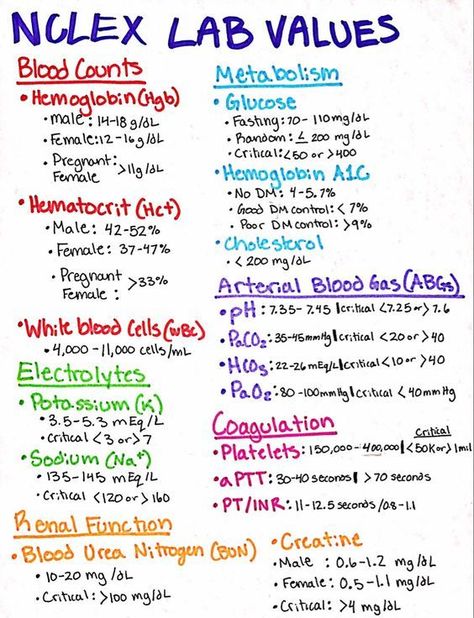 NCLEX LAB VALUES
Blood Counts
• Hemoglobin (Hgb)
• male: 14-18 g/dL
• Female: 12-16 g/dL
• Pregnant Female >11g/dL
• Hematocrit (Hct)
• Male: 42-52%
• Female: 37-47%
• Pregnant Female: >33%
• White blood Cells (WBC)
• 4,000-11,000 cells/mL
Electrolytes
• Potassium (K)
• 3.5-5.3 mEq/L
• Critical <3 or >7
• Sodium (Na+)
• 135-145 mEq/L
• Critical <120 or >160
Renal Function
• Blood Urea Nitrogen (BUN)
• 10-20 mg/dL
• Critical: >100 mg/dL
Metabolism
• Glucose
• Fasting: 70-110 mg/dL
• Random: ≤ 200 mg/dL
• Critical: <50 or >400
• Hemoglobin A1C
• No DM: 4-5.7%
• Good DM control: <7%
• Poor DM control: >9%
• Cholesterol
• <200 mg/dL
Arterial Blood Gas (ABGs)
• pH: 7.35-7.45 | critical <7.25 or >7.6
• PaCO2: 35-45mmHg | critical <20 or >40
• HCO3: 22-26 mEq/L | critical <10 or >40
• PaO2: 80-100mmHg | critical <40mmHg
Coagulation
Critical
• Platelets: 150,000-400,000 | <50K or >1mil
• aPTT: 30-40 seconds | >70 seconds
• PT/INR: 11-12.5 seconds/0.8-1.1
• Creatine
• Male: 0.6-1.2 mg/dL
• Female: 0.5-1.1 mg/dL
• Critical: >4 mg/dL